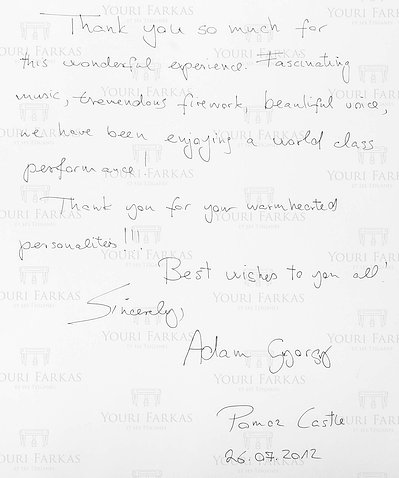 Thank you so much for
this wonderful experience. Fascinating
music, tremendous firework, beautiful voice,
we have been enjoying a world class
performance!
Thank you for your warmhearted
personalities!!!
Best wishes to you all!
Sincerely,
Adam Gyorgy
Pomaz Castle
26.07.2012
YOURI FARKAS
ET SES TZIGANES